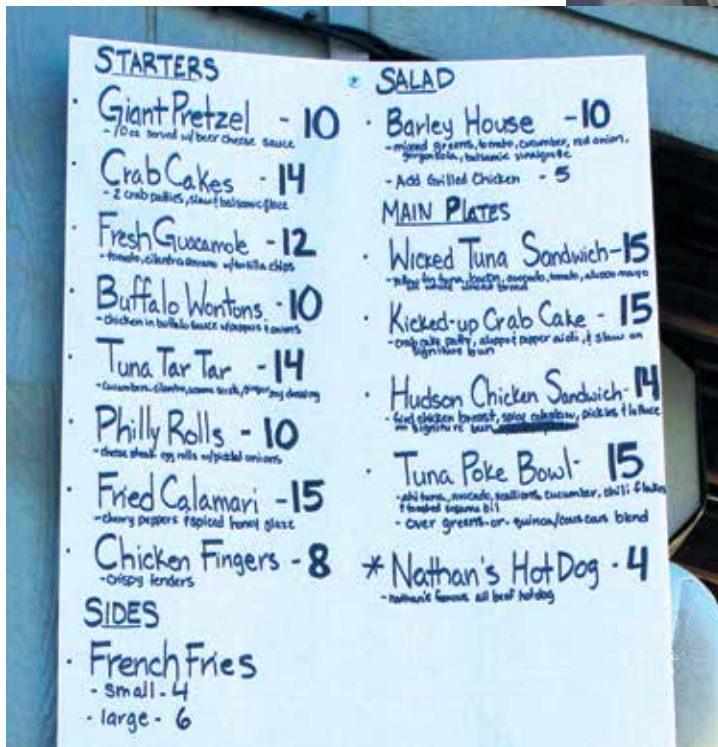 STARTERS
Giant Pretzel - 10
- 10oz served w/beer cheese sauce
Crab Cakes - 14
- 2 crab patties, slaw & balsamic glaze
Fresh Guacamole - 12
- tomato, cilantro w/tortilla chips
Buffalo Wontons - 10
- chicken in buffalo sauce w/peppers & onions
Tuna Tar Tar - 14
- cucumber, cilantro, soy dressing
Philly Rolls - 10
- cheese steak egg rolls w/pickled onions
Fried Calamari - 15
- cherry peppers & spiced honey glaze
Chicken Fingers - 8
- crispy tenders
SIDES
French Fries
- small - 4
- large - 6
SALAD
Barley House - 10
- mixed greens, tomato, cucumber, red onion,
gorgonzola, balsamic vinaigrette
- Add Grilled Chicken - 5
MAIN PLATES
Wicked Tuna Sandwich - 15
tuna, bacon, avocado, tomato, mayo
on bread
Kicked-up Crab Cake - 15
- crab cake patty, aleppo pepper aioli, & slaw on
signature bun
Hudson Chicken Sandwich - 14
- fried chicken breast, spicy coleslaw, pickles & lettuce
on signature bun
Tuna Poke Bowl - 15
- ahi tuna, avocado, scallions, cucumber, chili flakes
& toasted sesame oil
- over greens -or- quinoa/couscous blend
* Nathan's Hot Dog - 4
- nathan's famous all beef hotdog